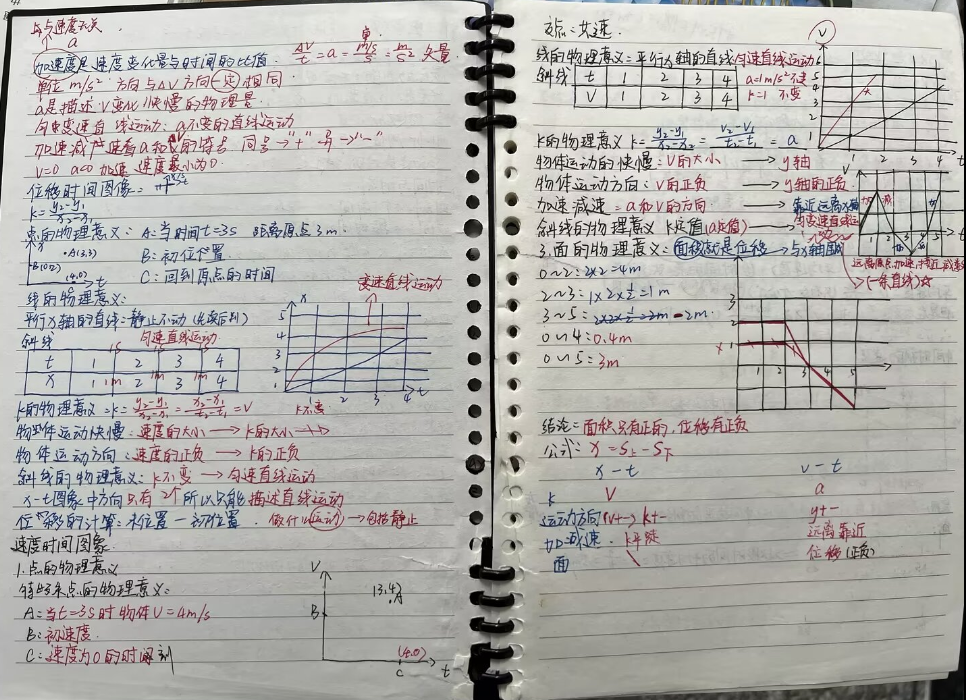 a与速度无关
a
加速度是速度变化量与时间的比值 ΔV/t = a = m/s/s = m/s² 矢量
单位 m/s² 方向与ΔV方向一定相同
a是描述V变化快慢的物理量
匀变速直线运动：a不变的直线运动
加速减速看a和V的符号 同号→"+" 异→"-"
V=0 a≠0 加速 速度最小为0
位移时间图像：
k=y₂-y₁/x₂-x₁
点的物理意义：A：当时间t=3s 距离原点3m.
·A(3,3) B：初位置
B(0,2)
(4,0) C：回到原点的时间
t
线的物理意义： 变速直线运动
平行X轴的直线：静止不动
斜线 匀速直线运动
t 1 2 3 4
X 1 2 3 4
1m 1m 1m
x
5
4
3
2
1
1 2 3 4 t
k的物理意义：k=y₂-y₁/x₂-x₁=x₂-x₁/t₂-t₁=V k不变
物体运动快慢：速度的大小→k的大小
物体运动方向：速度的正负→k的正负
斜线的物理意义：k不变→匀速直线运动
x-t图象中方向只有2个所以只能描述直线运动
位移的计算：末位置-初位置. 做什么运动→包括静止
速度时间图象
1.点的物理意义
特殊点的物理意义：
A：当t=3s时物体V=4m/s
B：初速度
C：速度为0的时间刻
V
(3,4)
A
B
(4,0)
C t
交点：共速.
线的物理意义：平行x轴的直线匀速直线运动
斜线 t 1 2 3 4 a=1m/s²不变
V 1 2 3 4 k=1 不变
V
6
5
4
3
2
1
1 2 3 4 t
k的物理意义 k=y₂-y₁/x₂-x₁=V₂-V₁/t₂-t₁=a
物体运动的快慢：V的大小→y轴
物体运动方向：V的正负→y轴的正负
加速减速=a和V的方向→靠近远离x轴
斜线的物理意义 k定值(a定值)→匀变速直线运动
3.面的物理意义：面积就是位移→与x轴围
远离原点加速，靠近减速
(一条直线)☆
0~2：2x2=4m
2~3：1x2x½=1m
3~5：2x2x½=2m -2m.
0~4：0.4m
0~5：3m
3
2
1
1 2 3 4 5
结论：面积只有正的，位移有正负
公式：x=S上-S下
x-t v-t
k V a
运动方向(v+-)k+- y+-
加减速. k平陡 远离靠近
面 位移(正负)